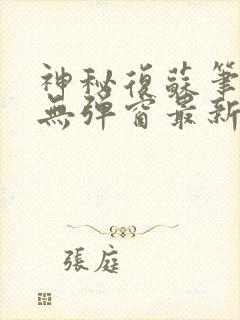 神秘復蘇筆
無彈窗最新
張庭